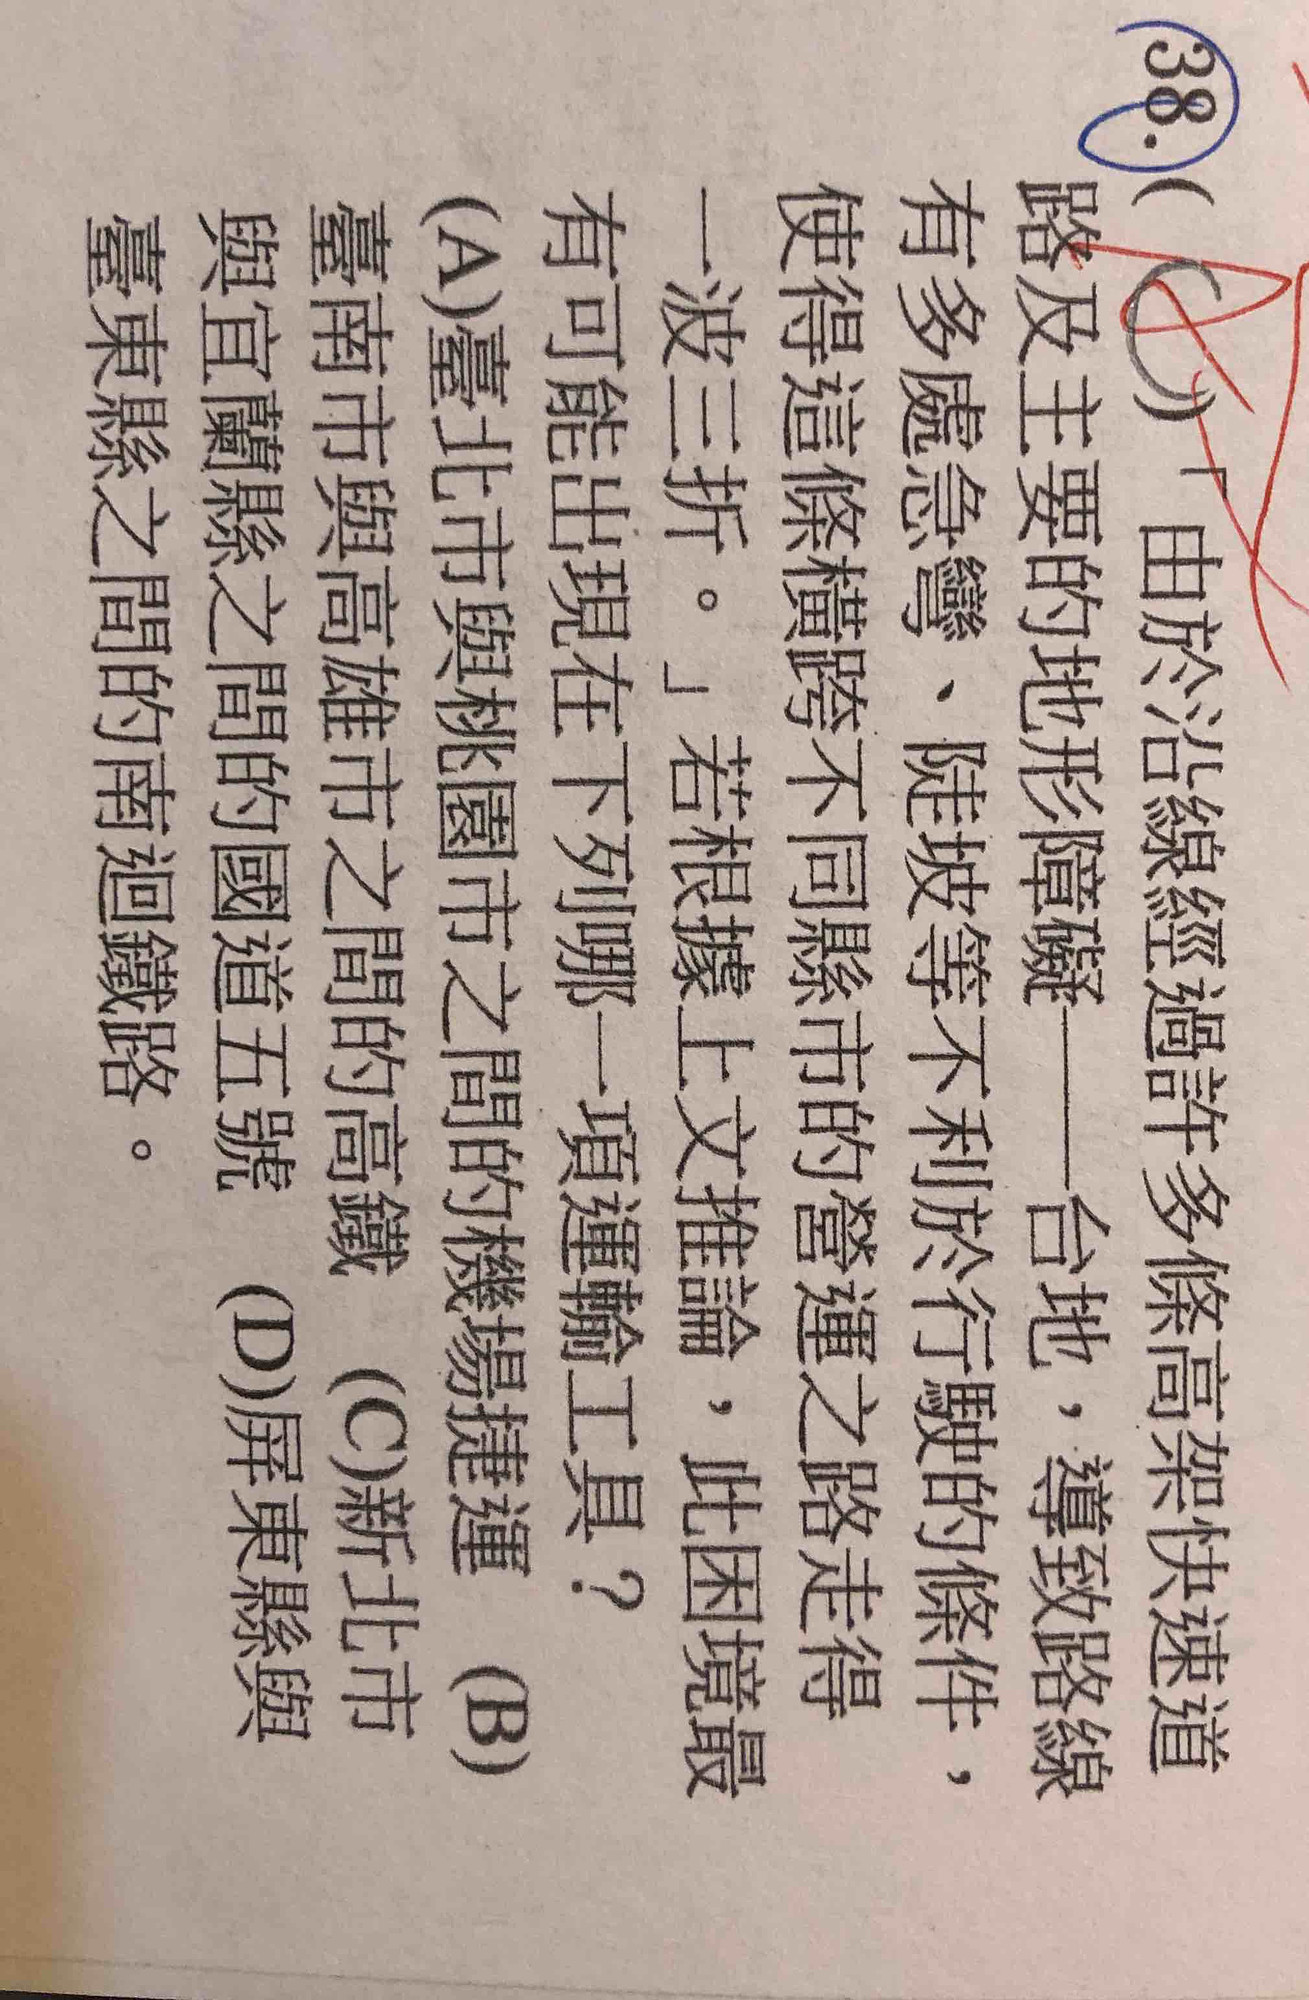 38.( C )「由於沿線經過許多條高架快速道
路及主要的地形障礙——台地，導致路線
有多處急彎、陡坡等不利於行駛的條件，
使得這條橫跨不同縣市的營運之路走得
一波三折。」若根據上文推論，此困境最
有可能出現在下列哪一項運輸工具？
(A)臺北市與桃園市之間的機場捷運　(B)
臺南市與高雄市之間的高鐵　(C)新北市
與宜蘭縣之間的國道五號　(D)屏東縣與
臺東縣之間的南迴鐵路。